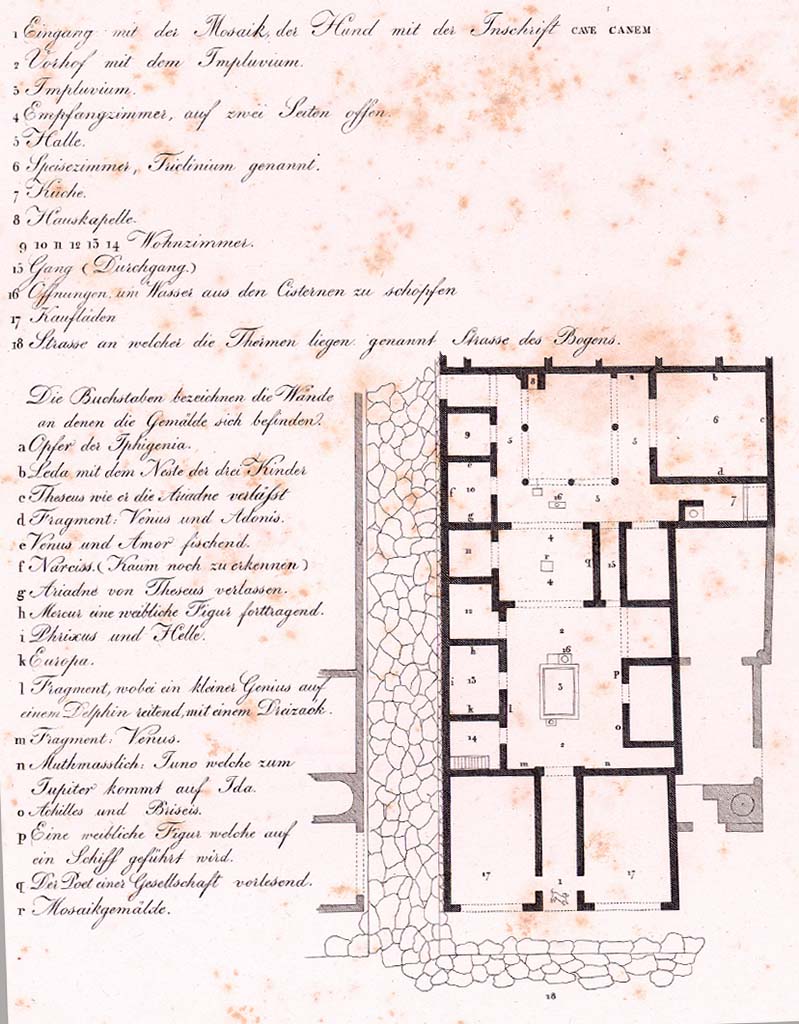 1 Eingang mit der Mosaik, der Hund mit der Inschrift CAVE CANEM
2 Vorhof mit dem Impluvium.
3 Impluvium.
4 Empfangzimmer, auf zwei Seiten offen.
5 Halle.
6 Speisezimmer, Triclinium genannt.
7 Küche.
8 Hauskapelle.
9 10 11 12 13 14 Wohnzimmer.
15 Gang (Durchgang.)
16 Öffnungen um Wasser aus den Cisternen zu schöpfen
17 Kaufläden
18 Strasse an welcher die Thermen liegen genannt Strasse des Bogens.
Die Buchstaben bezeichnen die Wände
an denen die Gemälde sich befinden.
a Opfer der Iphigenia.
b Leda mit dem Neste der drei Kinder
c Theseus wie er die Ariadne verläſst
d Fragment: Venus und Adonis.
e Venus und Amor fischend.
f Narciss. (Kaum noch zu erkennen)
g Ariadne von Theseus verlassen.
h Mercur eine weibliche Figur forttragend.
i Phrixus und Helle.
k Europa.
l Fragment, wobei ein kleiner Genius auf
einem Delphin reitend, mit einem Dreizack.
m Fragment: Venus.
n Muthmasslich: Iuno welche zum
Iupiter kommt auf Ida.
o Achilles und Briseis.
p Eine weibliche Figur welche auf
ein Schiff geführt wird.
q Der Poet einer Gesellschaft vorlesend.
r Mosaikgemälde.
8 a b
9 5 5 6 c
e d
f 10 16 5 7
g
4
11 r q 15
4
12 2
h 16
i 13 3 p
k l
o
14 2
m n
17 1 17
18